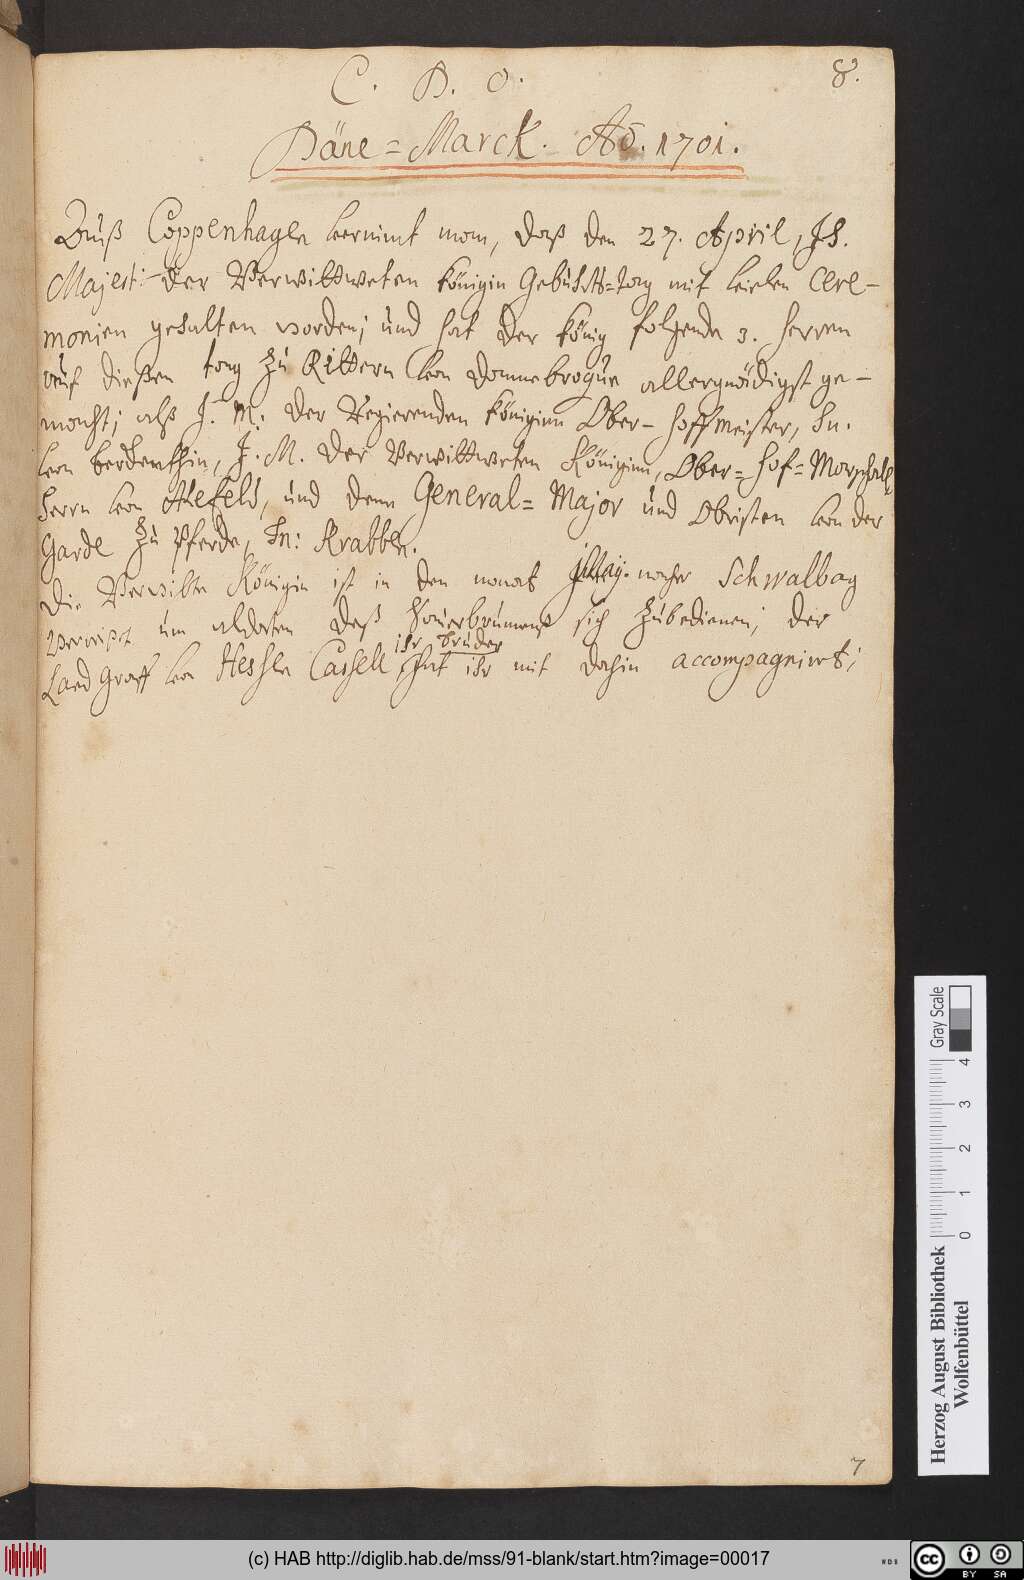 C. D. O.
8.
Däne=Marck. Aō. 1701.
Auß Coppenhagen vernimt man, daß den 27. April, Ih.
Majest: der Verwittweten Königin Gebuhrts=tag mit vielen Cere-
monien gehalten worden; und hat der König folgende 3. Herren
auf dießen tag zu Rittern von Dannebrogue allergnädigst ge-
macht; alß J. M: der Regierenden Königinn Ober-Hoffmeister, Hn.
von Berckenthin, J. M. der Verwittweten Königinn, Ober=Hof=Marschall
Herrn von Alefeld, und denn General=Major und Obristen von der
Garde zu Pferde, Hn: Krabben.
Die Verwitte Königin ist in den monat nacher Schwalbag
Verreißt um aldorten deß Sauerbrunnens sich zubedienen; der
ihr Bruder
Land Graff von Hessen Cassell, hat ihr mit dahin accompagnirt;
7
Herzog August Bibliothek
Wolfenbüttel
0 1 2 3 4
Gray Scale
(c) HAB http://diglib.hab.de/mss/91-blank/start.htm?image=00017
WDB
cc BY SA